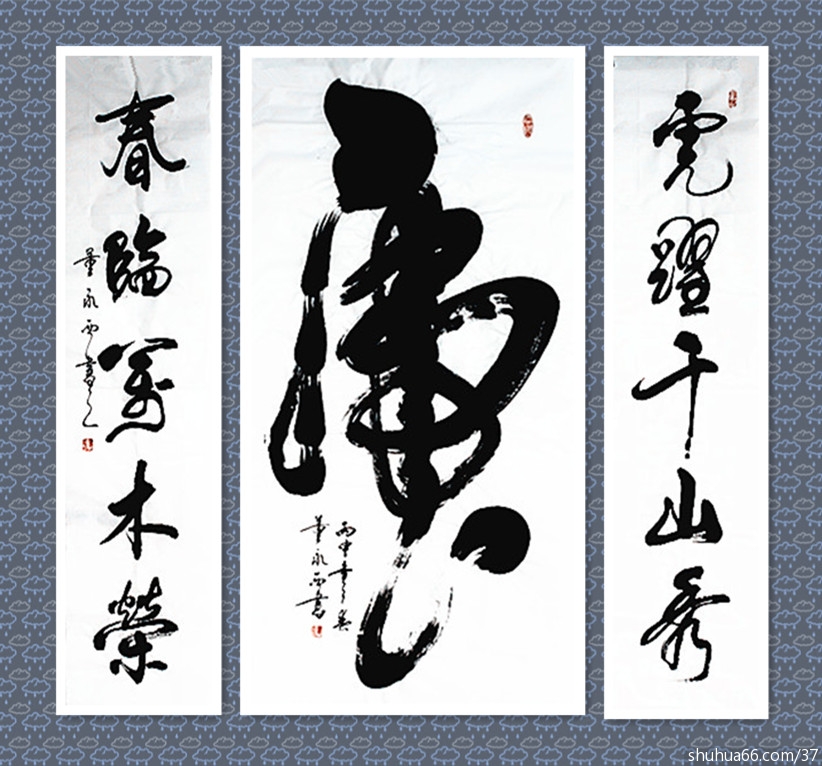 虎躍千山秀
虎
丙申
董永西書
春臨萬木榮
董永西書
shuhua66.com/37